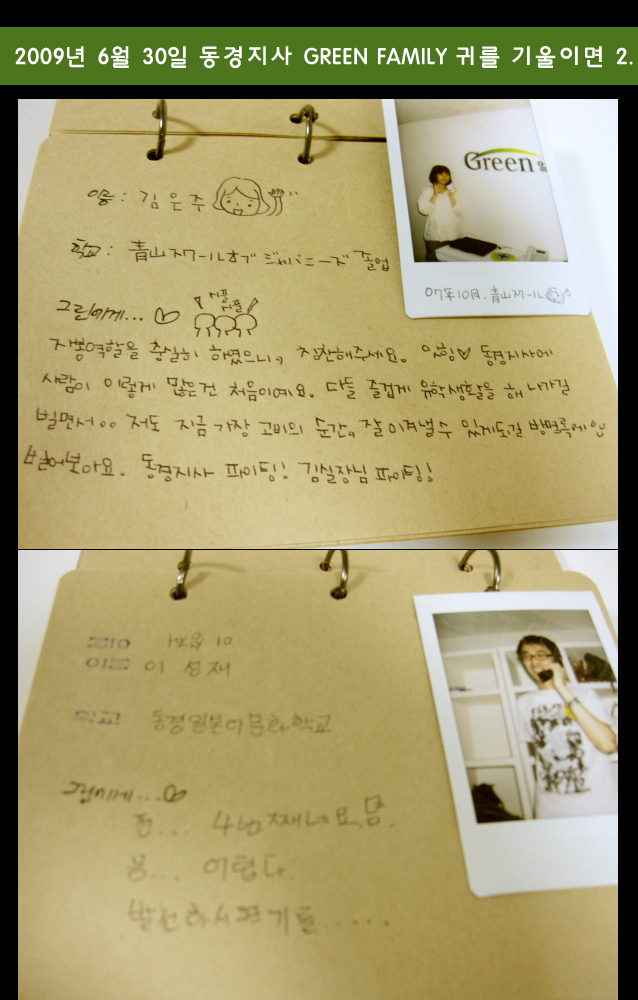 2009년 6월 30일 동경지사 GREEN FAMILY 귀를 기울이면 2.
Green 일
이름 : 김은주
학교 : 青山スクールオブ ジャパニーズ 졸업
07年10月. 青山スクール
그린에게...
시끌 시끌
자봉역할을 충실히 하였으니, 칭찬해주세요. 인침♡ 동경지사에
사람이 이렇게 많은건 처음이예요. 다들 즐겁게 유학생활을 해 나가길
빌면서.. 저도 지금 가장 고비의 순간, 잘 이겨낼 수 있게도길 방명록에
빌어보아요. 동경지사 파이팅! 김실장님 파이팅!
10
이름 이 성재
학교 동경일본어문화학교
그린에게...
전... 4번째네요.
음... 어렵다.
발전하시길 기도 ....